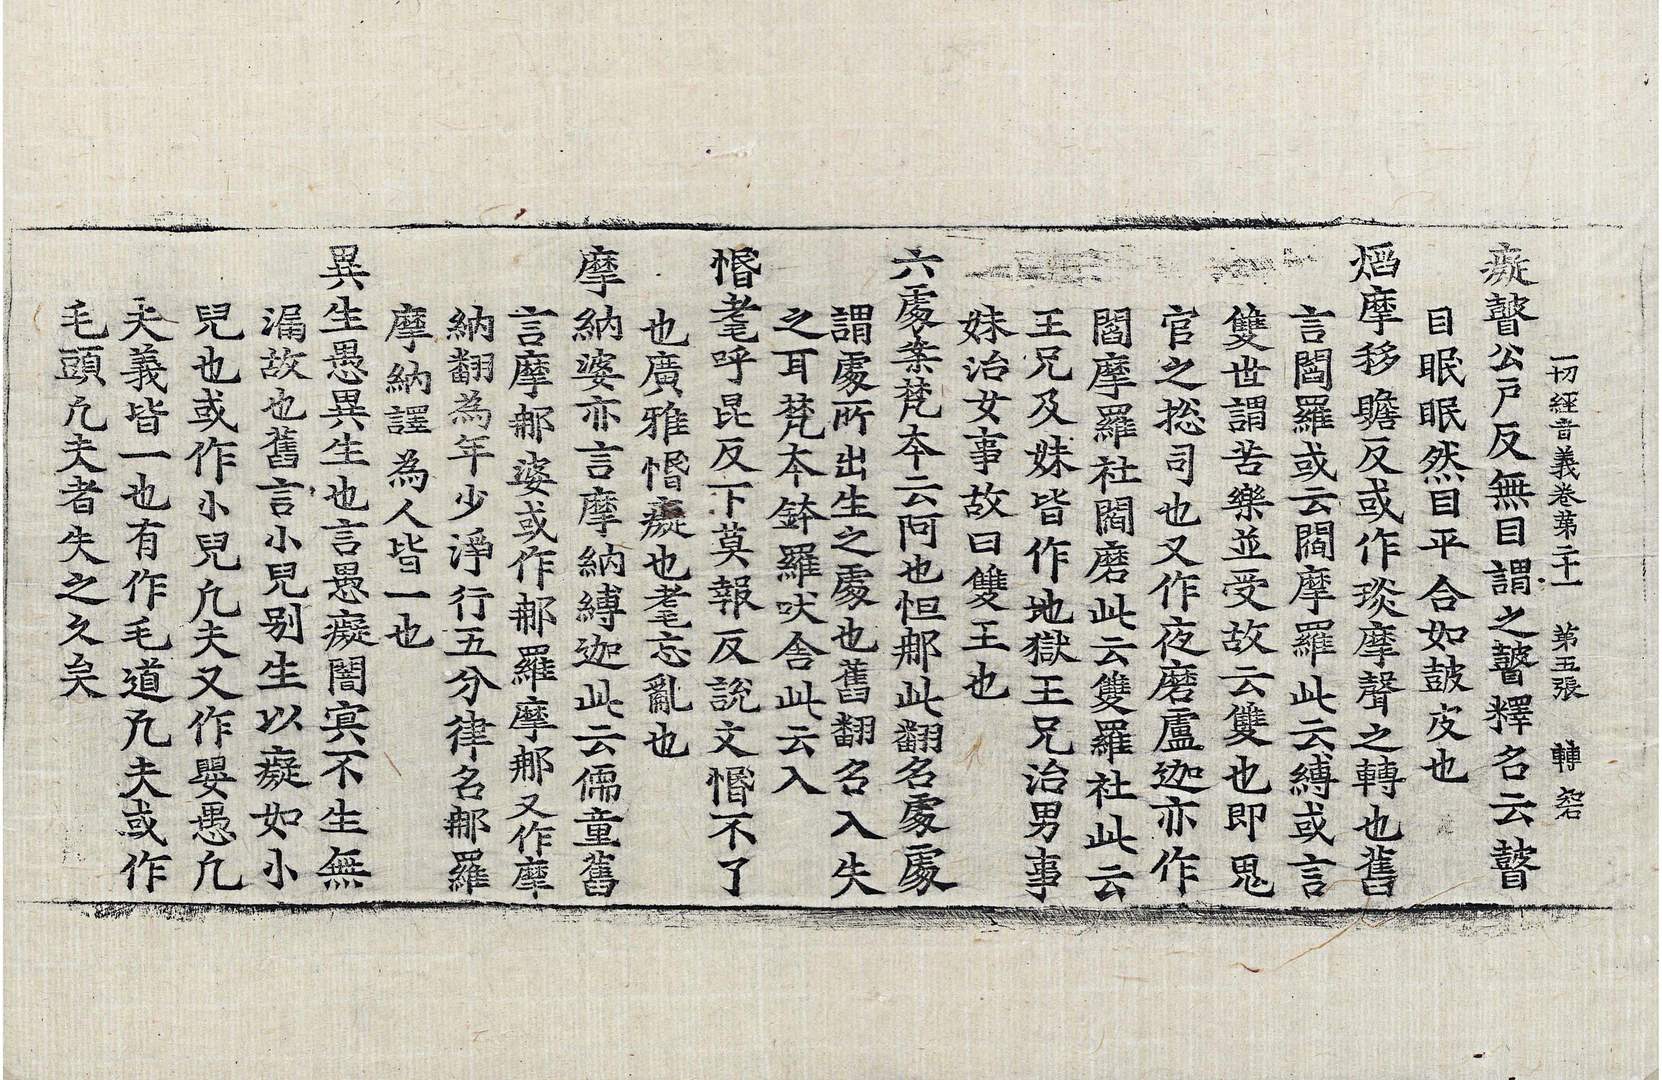 一切經音義卷苐二十一　苐五張　轉𥓓
癡瞽公戶反無目謂之瞽釋名云瞽
目眠眠然目平合如皷皮也
熖摩移贍反或作琰摩聲之轉也舊
言閻羅或云閻摩羅此云縛或言
雙世謂苦樂並受故云雙也即鬼
官之捴司也又作夜磨盧迦亦作
閻摩羅社閻磨此云雙羅社此云
王兄及妹皆作地獄王兄治男事
妹治女事故曰雙王也
六處案梵夲云阿也怛那此翻名處處
謂處所出生之處也舊翻名入失
之耳梵夲鉢羅吠舍此云入
惛耄呼昆反下莫報反說文惛不了
也廣雅惛癡也耄忘亂也
摩納婆亦言摩納縛迦此云儒童舊
言摩那婆或作那羅摩那又作摩
納翻為年少淨行五分律名那羅
摩納譯為人皆一也
異生愚異生也言愚癡闇冥不生無
漏故也舊言小兒别生以癡如小
兒也或作小兒凡夫又作嬰愚凡
夫義皆一也有作毛道凡夫或作
毛頭凡夫者失之久矣